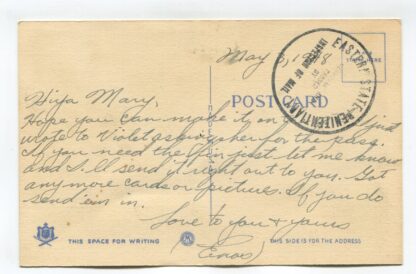 May 3, 1938
EASTERN STATE PENITENTIARY
INSPECTOR OF MAIL
POST CARD
Hiya Mary,
Hope you can make it on I just
wrote to Violet asking her for the pass.
If you need the fin just let me know
and I'll send it right out to you. Got
any more cards or pictures. If you do
send 'em in.
Love to you & yours
THIS SPACE FOR WRITING
THIS SIDE IS FOR THE ADDRESS